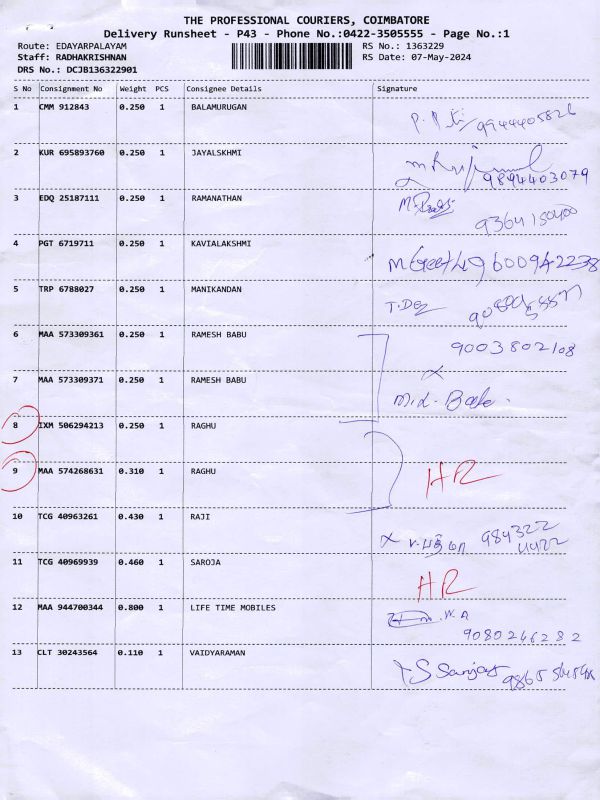 THE PROFESSIONAL COURIERS, COIMBATORE
Delivery Runsheet - P43 - Phone No.:0422-3505555 - Page No.:1
Route: EDAYARPALAYAM RS No.: 1363229
Staff: RADHAKRISHNAN RS Date: 07-May-2024
DRS No.: DCJB136322901
S No Consignment No Weight PCS Consignee Details Signature
1 CMM 912843 0.250 1 BALAMURUGAN
9944405826
2 KUR 695893760 0.250 1 JAYALSKHMI
9894403079
3 EDQ 25187111 0.250 1 RAMANATHAN
9364150400
4 PGT 6719711 0.250 1 KAVIALAKSHMI
M Geetha 9600942238
5 TRP 6788027 0.250 1 MANIKANDAN
6 MAA 573309361 0.250 1 RAMESH BABU
9003802108
7 MAA 573309371 0.250 1 RAMESH BABU
8 IXM 506294213 0.250 1 RAGHU
9 MAA 574268631 0.310 1 RAGHU
HR
10 TCG 40963261 0.430 1 RAJI
984322
4422
11 TCG 40969939 0.460 1 SAROJA
HR
12 MAA 944700344 0.800 1 LIFE TIME MOBILES
9080246282
13 CLT 30243564 0.110 1 VAIDYARAMAN
S Sanjay